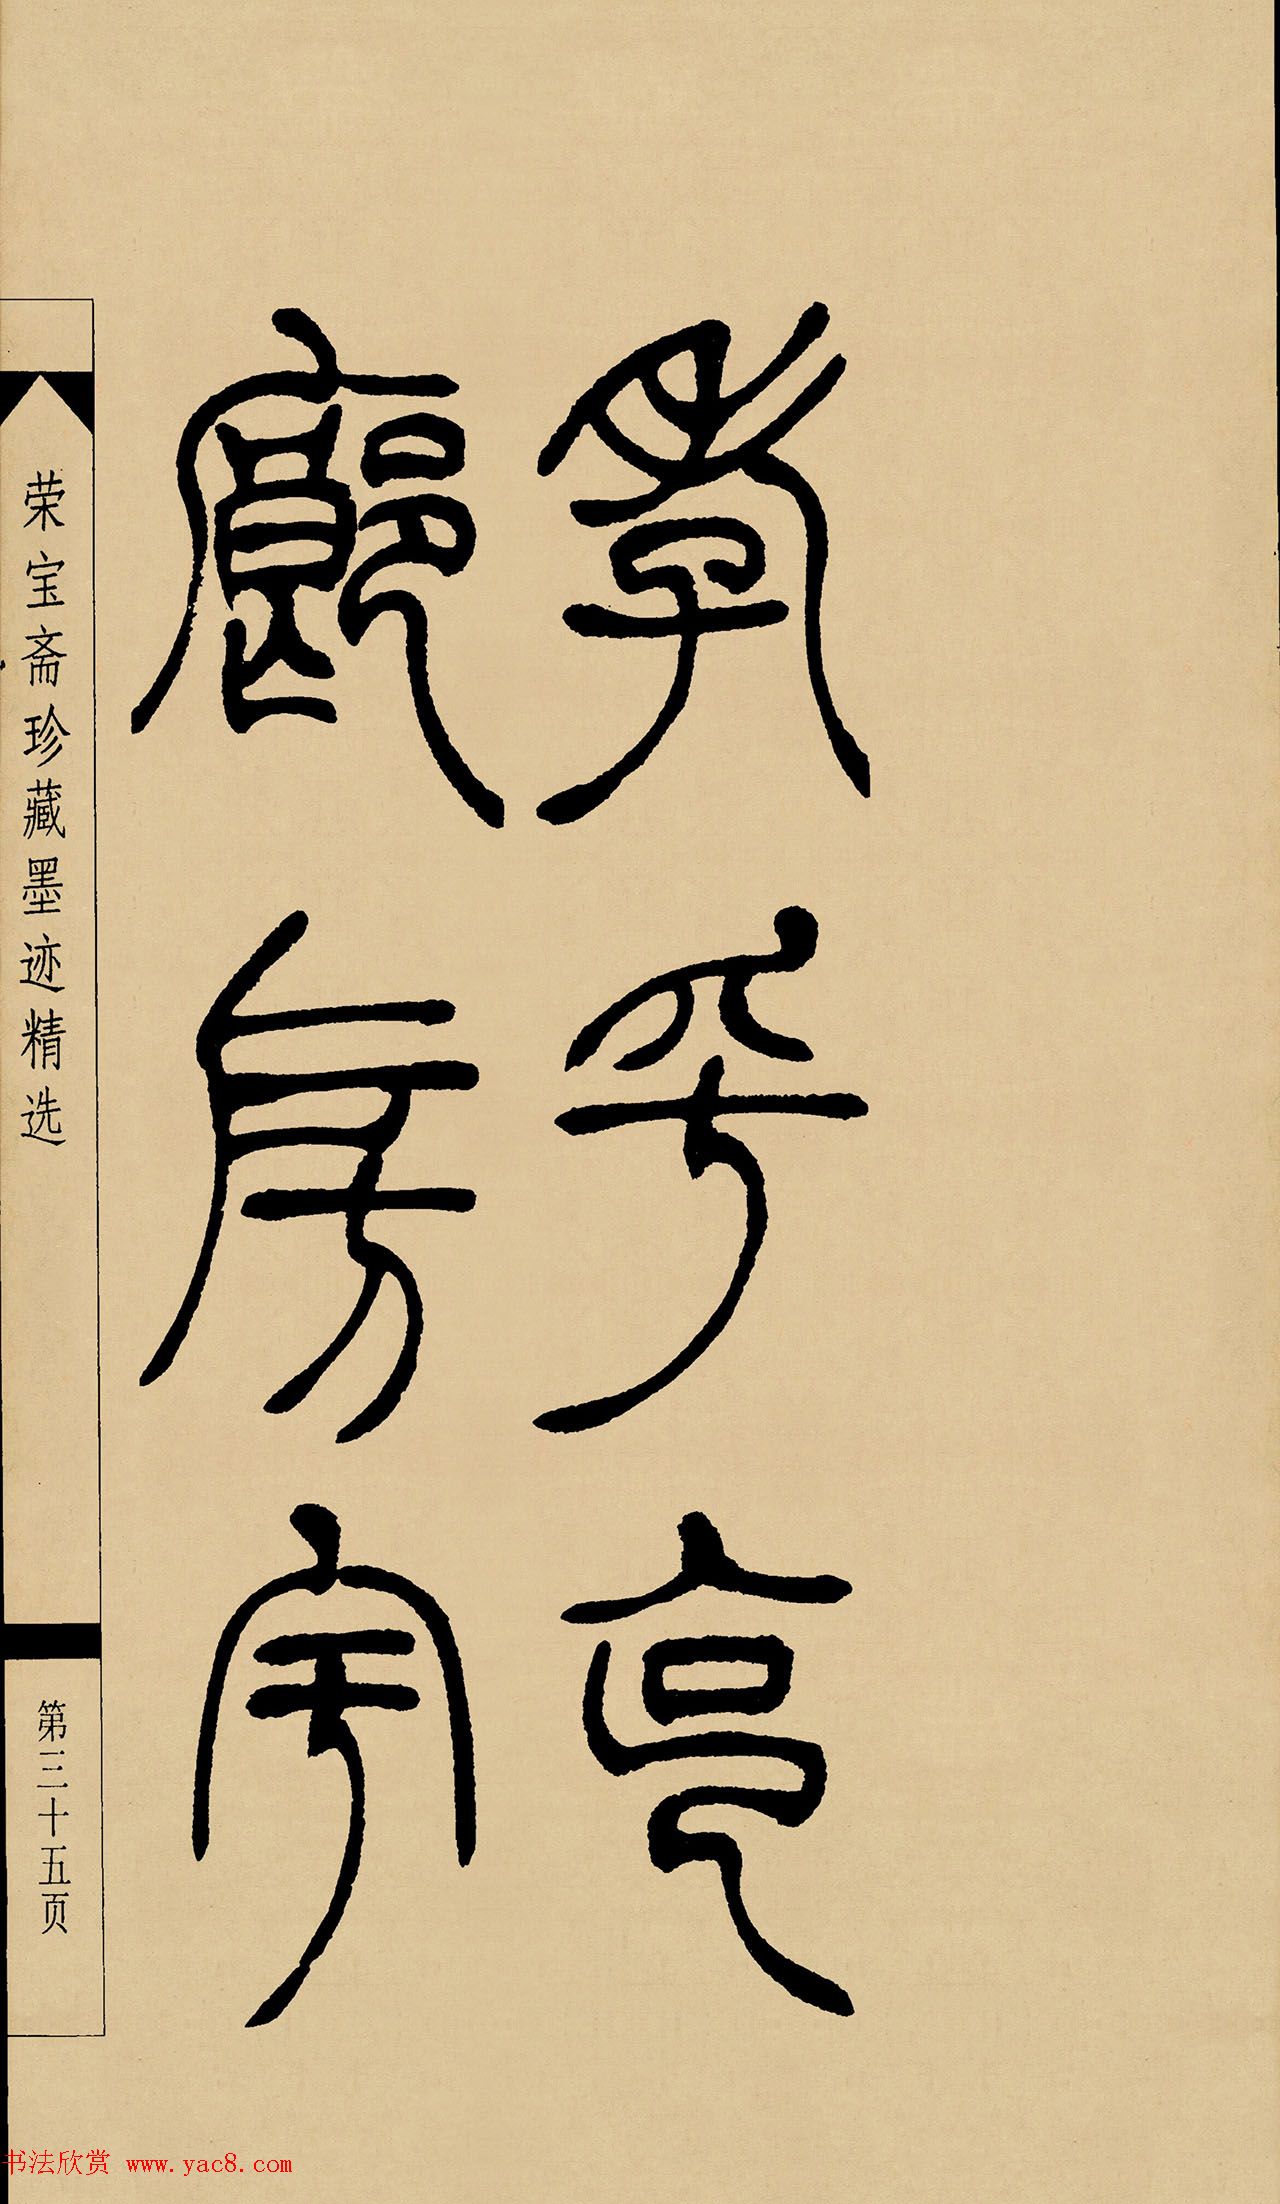 孝乎享
廊房宇
荣宝斋珍藏墨迹精选
第三十五页
书法欣赏 www.yac8.com